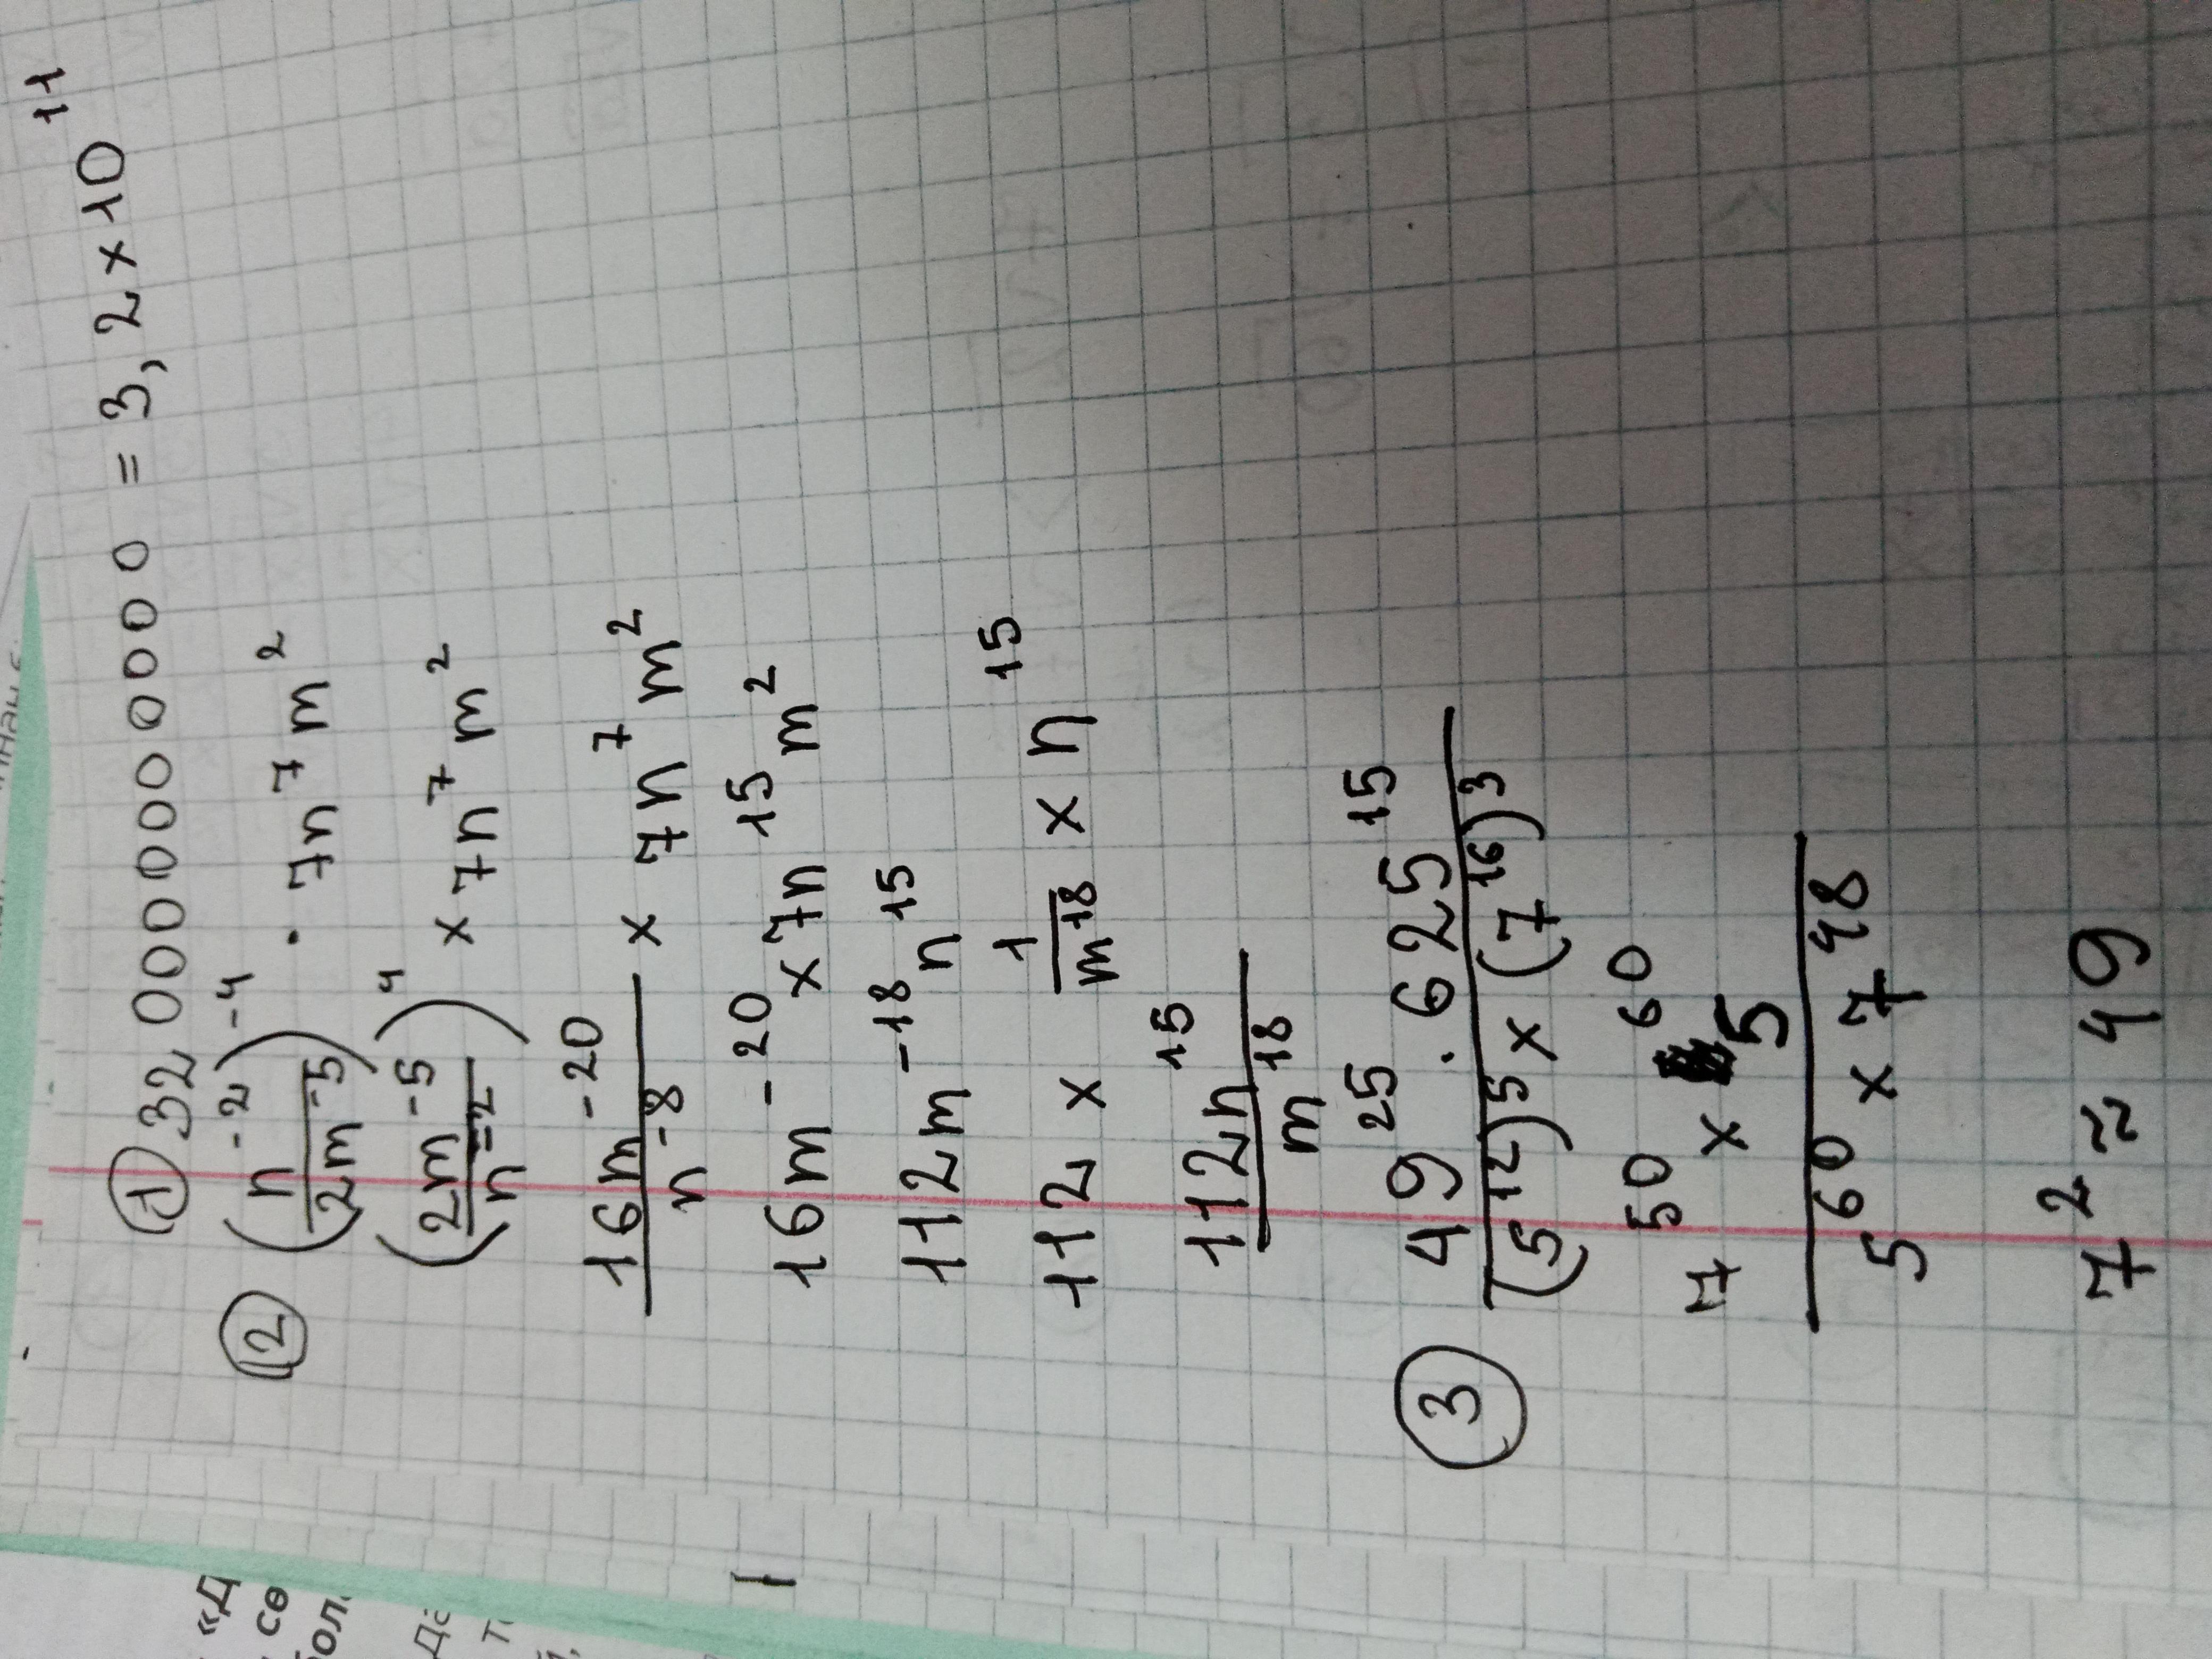 ① 32 0000000000 = 3,2×10¹¹
② (n⁻²/2m⁻⁵)⁻⁴ · 7n⁷m²
(2m⁻⁵/n⁻²)⁴ × 7n⁷m²
16m⁻²⁰/n⁻⁸ × 7n⁷m²
16m⁻²⁰ × 7n¹⁵m²
112m⁻¹⁸n¹⁵
112 × 1/m¹⁸ × n¹⁵
112n¹⁵/m¹⁸
③ 49²⁵ · 625¹⁵/(5¹²)⁵ × (7¹⁶)³
7⁵⁰ × 5⁶⁰/5⁶⁰ × 7⁴⁸
7² ≈ 49